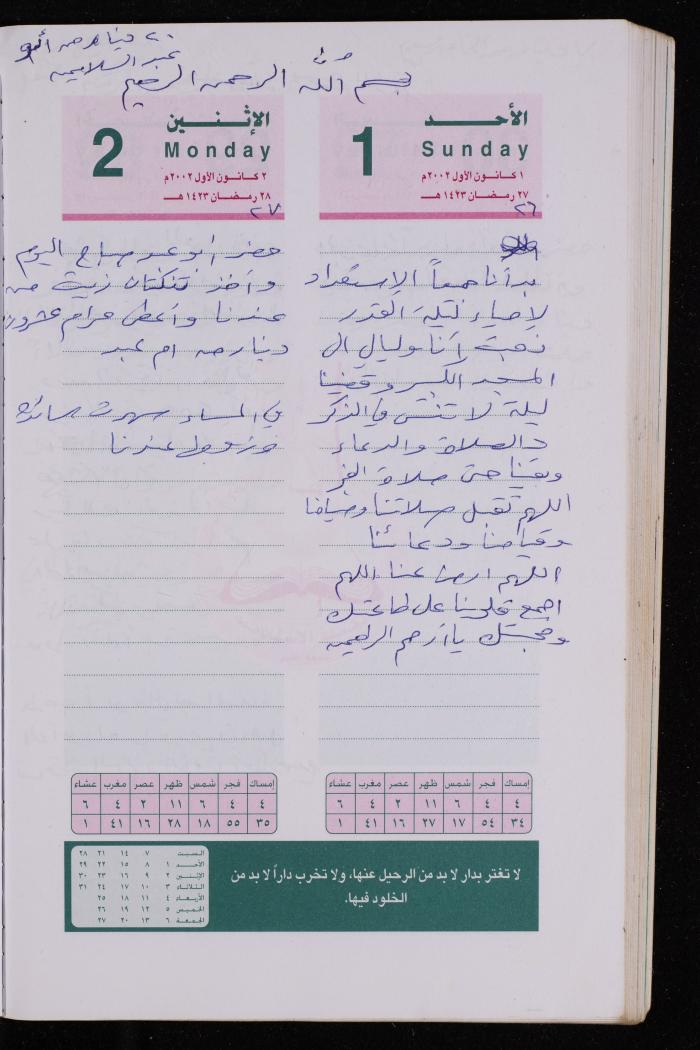 ٢٠ دينار من أبو
عبد السلايمه
بسم الله الرحمن الرحيم
الأحـــد
1 Sunday
١ كانون الأول ٢٠٠٢م
٢٧ رمضان ١٤٢٣ هـ
٢٦
بدأنا جميعاً الإستعداد
لإحياء ليلة القدر
ذهبت أنا وليالي الى
المسجد الكبير وقضينا
ليلة لا تنتسى في الذكر
والصلاة والدعاء
وبقينا حتى صلاة الفجر
اللهم تقبل صلاتنا وصيامنا
وقيامنا ودعائنا
اللهم ارضى عنا اللهم
اجمع قلوبنا على طاعتك
ومحبتك يا أرحم الراحمين
الإثنـــين
2 Monday
٢ كانون الأول ٢٠٠٢م
٢٨ رمضان ١٤٢٣ هـ
٢٧
حضر أبو عبد صباح اليوم
وأخذ تنكتان زيت من
عندنا وأعطى مرام عشرون
دينار من ام عبد
في المساء سهرت سائدة
عندنا
إمساك فجر شمس ظهر عصر مغرب عشاء
٤ ٤ ٦ ١١ ٢ ٤ ٦
٣٤ ٥٤ ١٧ ٢٧ ١٦ ٤١ ١
إمساك فجر شمس ظهر عصر مغرب عشاء
٤ ٤ ٦ ١١ ٢ ٤ ٦
٣٥ ٥٥ ١٨ ٢٨ ١٦ ٤١ ١
لا تغتر بدار لا بد من الرحيل عنها، ولا تخرب داراً لا بد من
الخلود فيها.
السبت ٧ ١٤ ٢١ ٢٨
الأحد ١ ٨ ١٥ ٢٢ ٢٩
الإثنين ٢ ٩ ١٦ ٢٣ ٣٠
الثلاثاء ٣ ١٠ ١٧ ٢٤ ٣١
الأربعاء ٤ ١١ ١٨ ٢٥
الخميس ٥ ١٢ ١٩ ٢٦
الجمعة ٦ ١٣ ٢٠ ٢٧